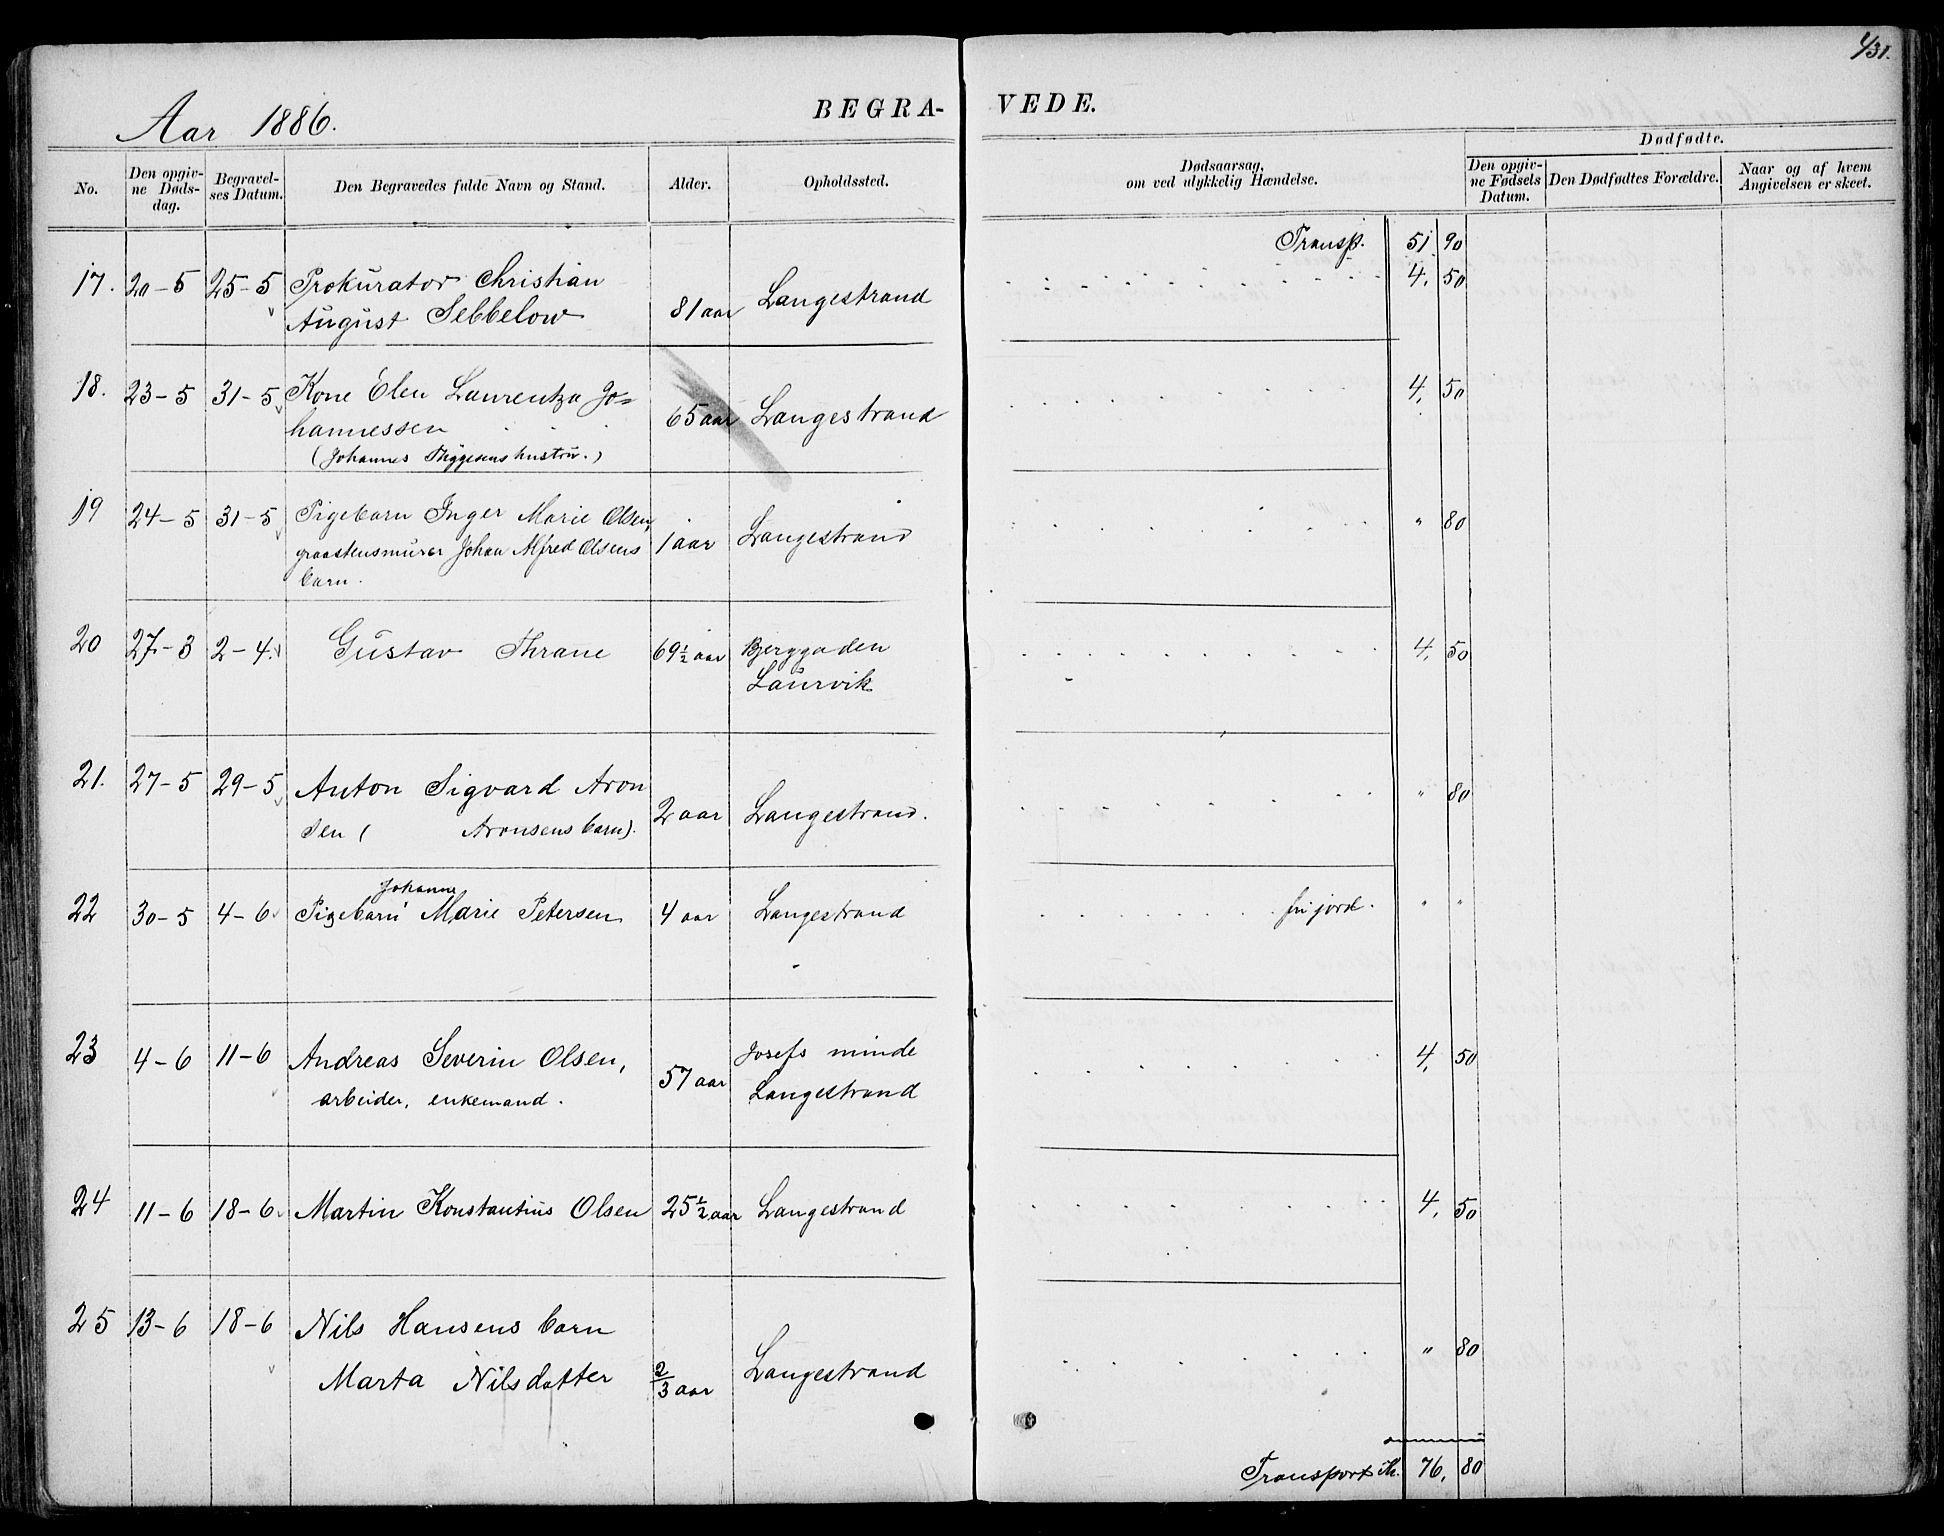 431.
Aar 1886.
BEGRA-VEDE.
No.
Den opgivne Dødsdag.
Begravelses Datum.
Den Begravedes fulde Navn og Stand.
Alder.
Opholdssted.
Dødsaarsag,
om ved ulykkelig Hændelse.
Dødfødte.
Den opgivne Fødsels Datum.
Den Dødfødtes Forældre.
Naar og af hvem Angivelsen er skeet.
Transp. 51 90
17. 20-5 25-5 Prokurator Christian
August Sebbelow 81 aar Langestrand 4, 50
18. 23-5 31-5 Kone Elen Laurentza Jo=
hannessen 65 aar Langestrand 4, 50
(Johannes Thygesens hustru.)
19 24-5 31-5 Pigebarn Inger Marie Olsen,
graastensmurer Johan Alfred Olsens 1 aar Langestrand " 80
barn.
20 27-3 2-4 Gustav Thrane 69 1/2 aar Bjerggaden 4, 50
Laurvik
21. 27-5 29-5 Anton Sigvard Aron
sen ( Aronsens barn). 2 aar Langestrand. " 80
Johanne
22 30-5 4-6 Pigebarn Marie Petersen 4 aar Langestrand fri jord. " "
23 4-6 11-6 Andreas Severin Olsen, 57 aar Josefs minde 4, 50
arbeider, enkemand. Langestrand
24 11-6 18-6 Martin Konstantius Olsen 25 1/2 aar Langestrand 4, 50
25 13-6 18-6 Nils Hansens barn
Marta Nilsdatter 2/3 aar Langestrand " 80
Transport 76, 80